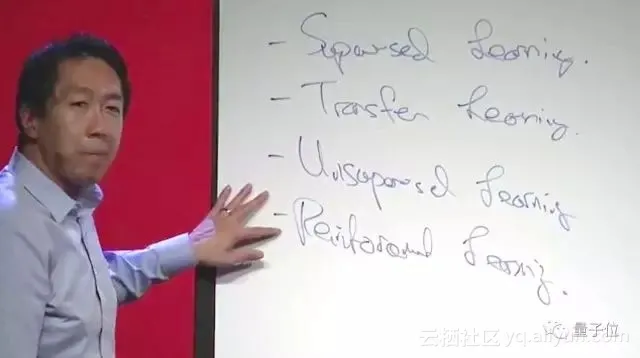 - Supervised Learning.
- Transfer Learning.
- Unsupervised Learning
- Reinforcement Learning.
量子位
云栖社区 yq.aliyun.com